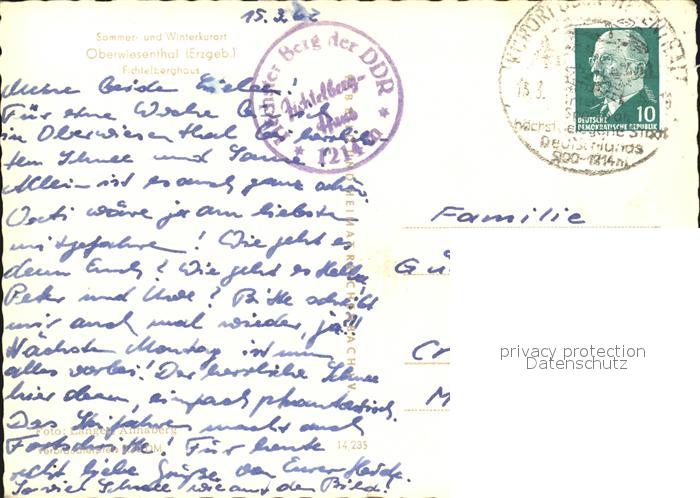 15.3.62
Sommer- und Winterkurort
Oberwiesenthal (Erzgeb.)
Fichtelberghaus
Höchster Berg der DDR
Fichtelberg-
Haus
1214 m
KURORT OBERWIESENTHAL
15.3.
höchstgelegene Stadt
Deutschlands
900-1214m
DEUTSCHE
DEMOKRATISCHE REPUBLIK 10
Meine beiden Lieben!
Für eine Woche bin ich
in Oberwiesenthal bei herrlich-
stem Schnee und Sonne!
Allein ist es auch ganz schön
Vati wäre ja am liebsten
mitgefahren! Wie geht es
denn Euch? Wie geht es
Peter und Uwe? Bitte schreibt
mir auch mal wieder, ja!!
Nächsten Montag ist nun
alles vorbei! Der herrliche Schnee
hier oben, einfach phantastisch.
Das Skifahren macht auch
Fortschritte! Für heute
recht liebe Grüße von Eurer
So viel Schnee wie auf dem Bild!
Foto: Lange, Annaberg
14,235
Familie
Gü
Cr
M
privacy protection
Datenschutz